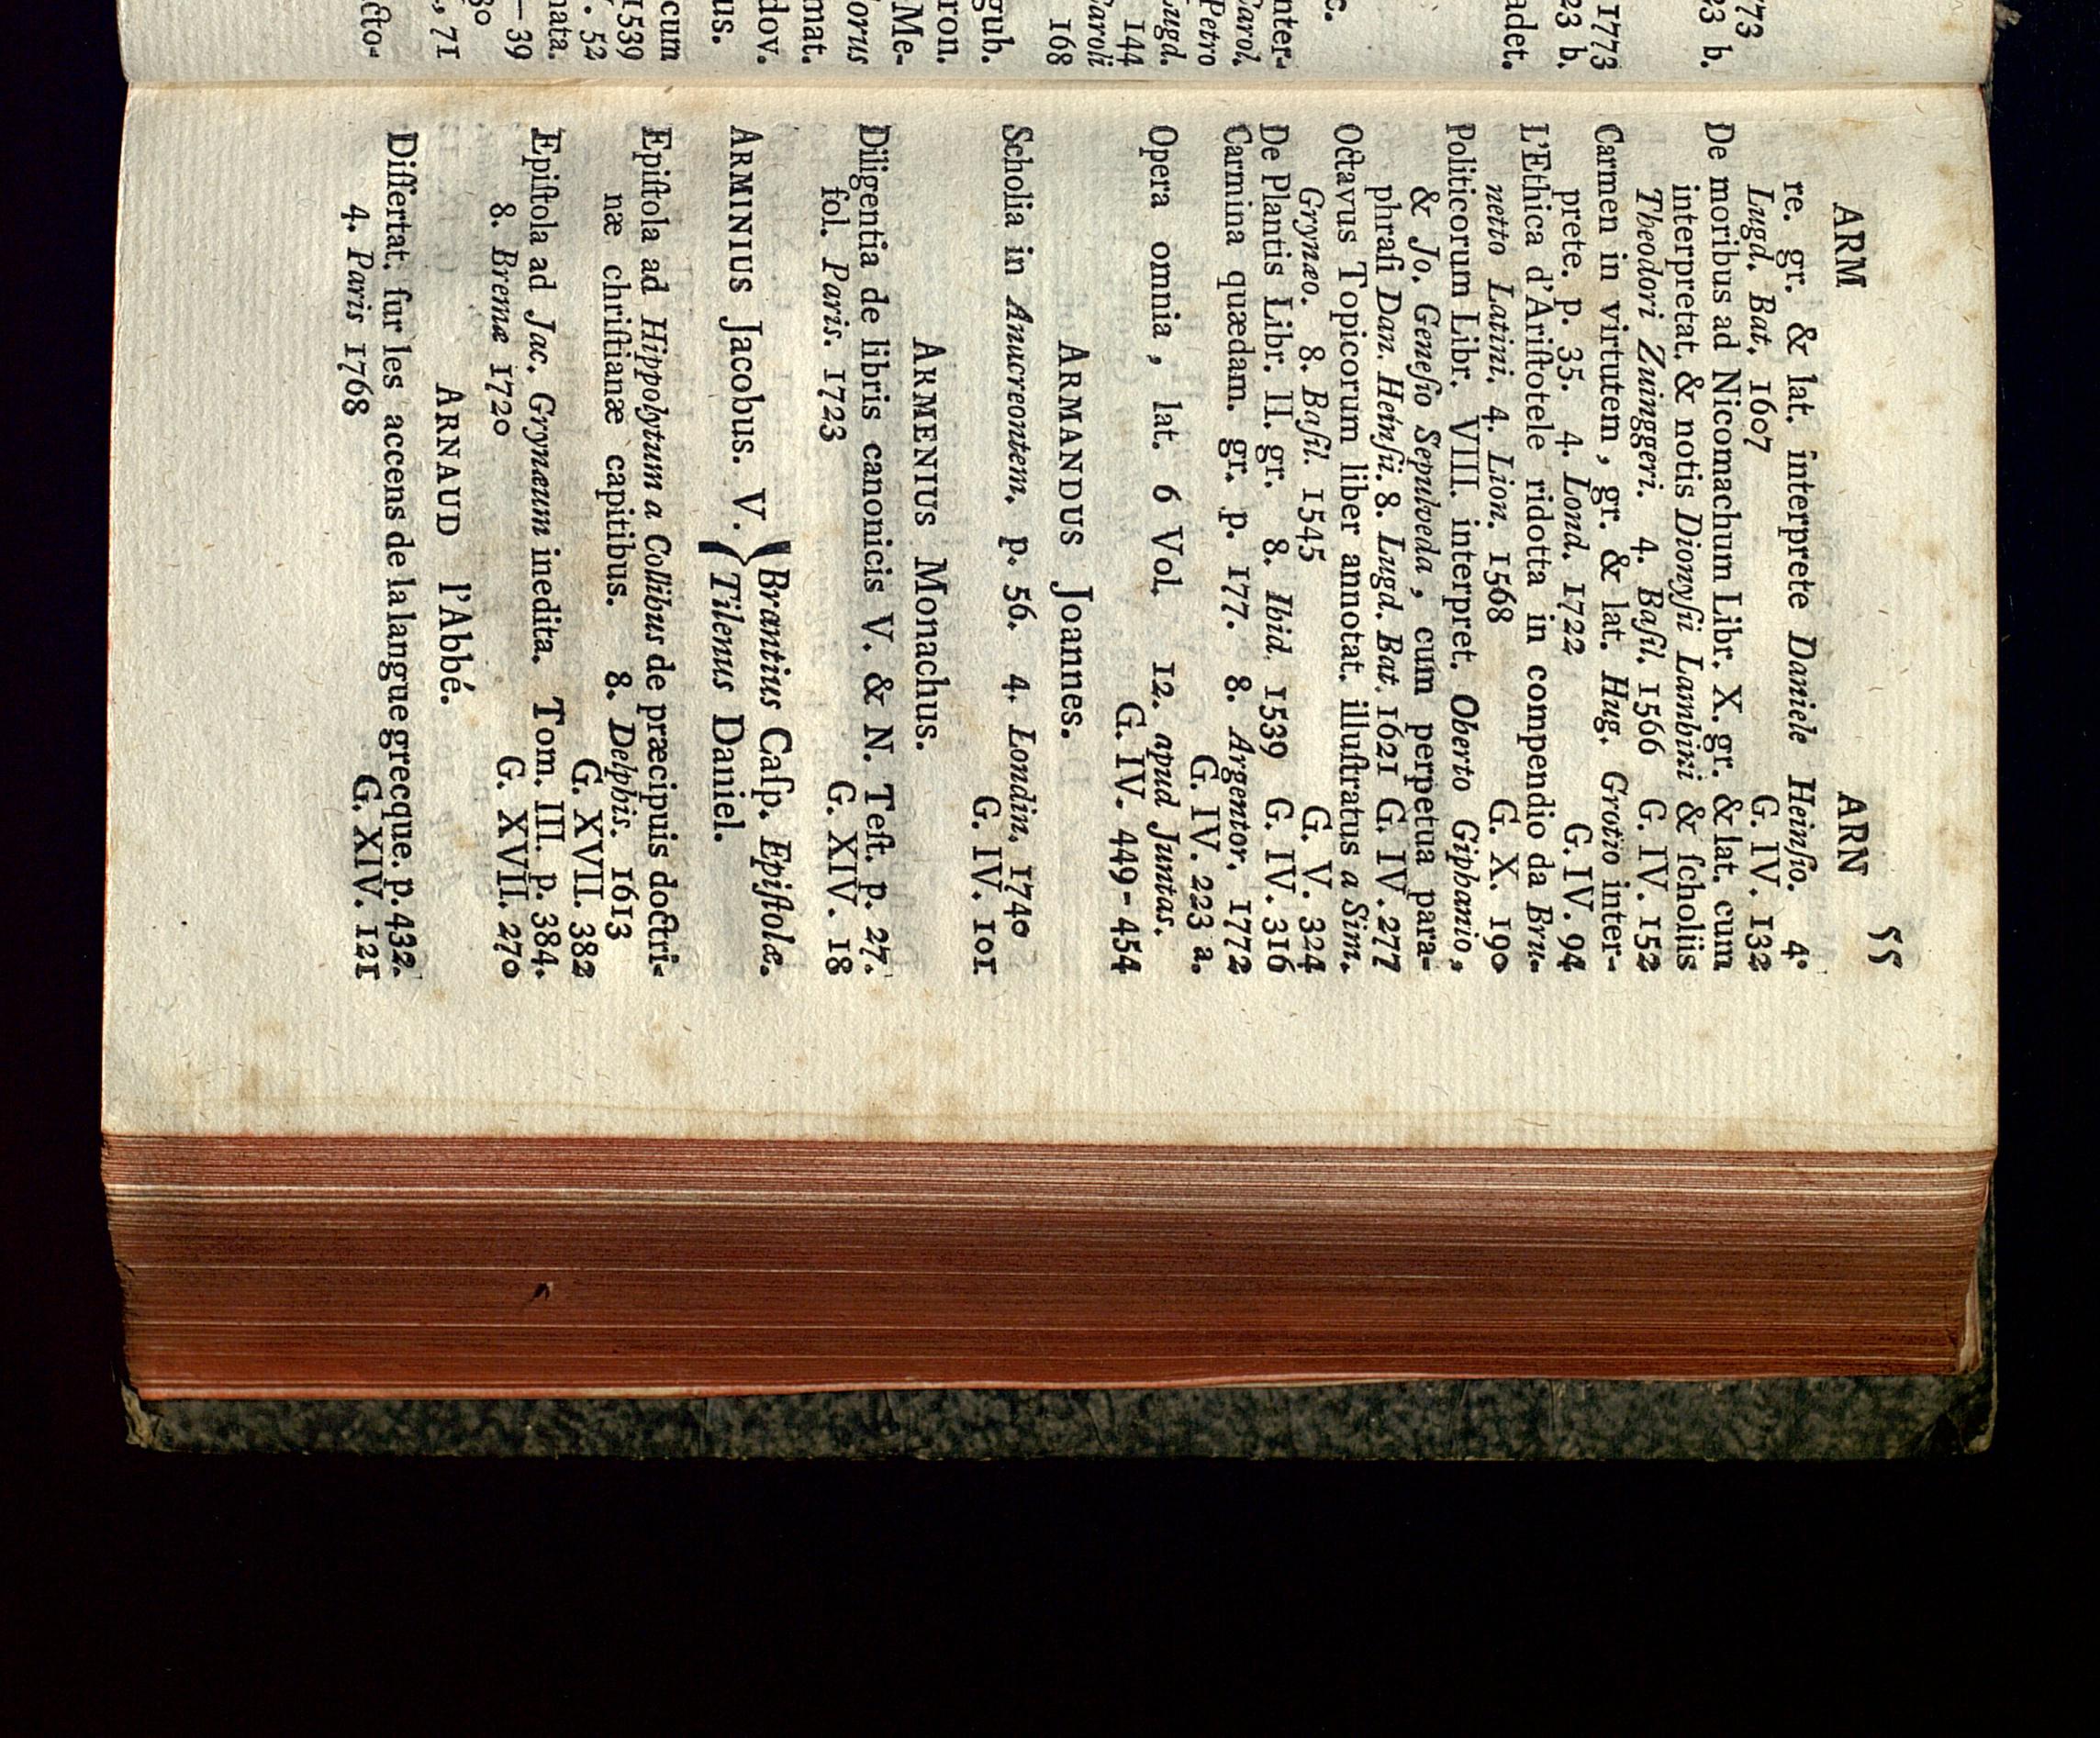 ARM ARN 55
re. gr. & lat. interprete Daniele Heinſio. 4.
Lugd. Bat. 1607 G. IV. 132
De moribus ad Nicomachum Libr. X. gr. & lat. cum
interpretat. & notis Dionyſii Lambini & ſcholiis
Theodori Zuinggeri. 4. Baſil. 1566 G. IV. 152
Carmen in virtutem, gr. & lat. Hug. Grotio inter-
prete. p. 35. 4. Lond. 1722 G. IV. 94
L'Ethica d'Ariſtotele ridotta in compendio da Bru-
netto Latini. 4. Lion. 1568 G. X. 190
Politicorum Libr. VIII. interpret. Oberto Giphanio,
& Jo. Geneſio Sepulveda, cum perpetua para-
phraſi Dan. Heinſii. 8. Lugd. Bat. 1621 G. IV. 277
Octavus Topicorum liber annotat. illuſtratus a Sim.
Grynæo. 8. Baſil. 1545 G. V. 324
De Plantis Libr. II. gr. 8. Ibid. 1539 G. IV. 316
Carmina quædam. gr. p. 177. 8. Argentor. 1772
G. IV. 223 a.
Opera omnia, lat. 6 Vol. 12. apud Juntas.
G. IV. 449-454
ARMANDUS Joannes.
Scholia in Anacreontem. p. 56. 4. Londin. 1740
G. IV. 101
ARMENIUS Monachus.
Diligentia de libris canonicis V. & N. Teſt. p. 27.
fol. Paris. 1723 G. XIV. 18
ARMINIUS Jacobus. V. { Brantius Caſp. Epiſtolæ.
Tilenus Daniel.
Epiſtola ad Hippolytum a Collibus de præcipuis doctri-
næ chriſtianæ capitibus. 8. Delphis. 1613
G. XVII. 382
Epiſtola ad Jac. Grynæum inedita. Tom. III. p. 384.
8. Bremæ 1720 G. XVII. 270
ARNAUD l'Abbé.
Diſſertat. ſur les accens de la langue grecque. p. 432.
4. Paris 1768 G. XIV. 121